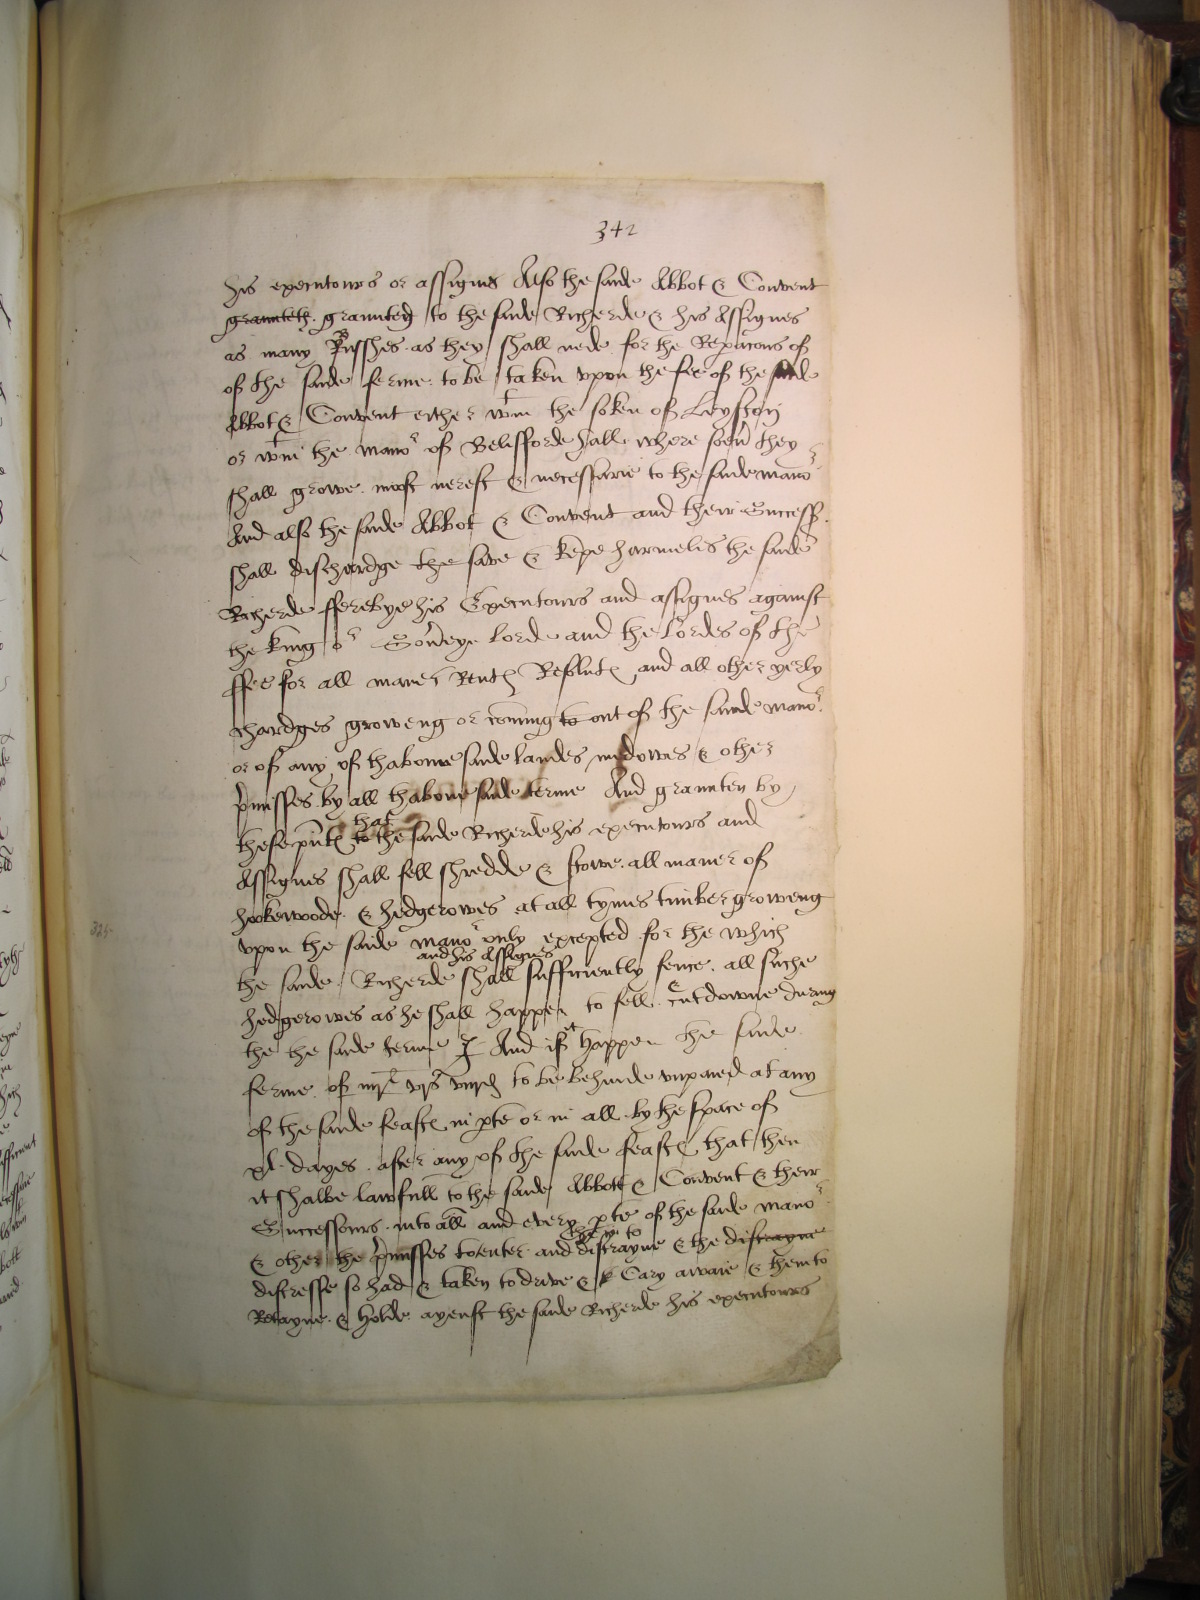 342
his executours or assignes Also the saide Abbot & Convent
graunteth graunten to the saide Richerde & his Assignes
as many Russhes as they shall nede for the Repacons of
of the saide ferme to be taken upon the fee of the saide
Abbot & Convent either wtin the soken of
or wtin the mano^r of Belssforde hall where soev they
shall growe most nerest & necessarie to the saide mano^r
And also the saide Abbot & Convent and their Success
shall dischardge the save & kepe harmelis the saide
Richerde fferebye his Executours and assignes against
the king o^r Sov'eye lorde and the lordes of the
ffee for all maner Rent Resolut and all other yerly
chardges groweng or coming to out of the saide mano^r
or of any of thabove saide landes medowes & other
p'misses by all thabove saide terme And graunten by
these p'nt that to the saide Richerde his executours and
Assignes shall fell shredde & stowe all maner of
hokewoode & hedgerowes at all tymes timber groweng
upon the saide mano^r only excepted for the which
and his Assignes
the saide Richerde shall sufficiently fence all suche
hedgerowes as he shall happen to fell & cutdowne during
the the saide terme And if it happen the saide
ferme of to be behinde unpaied at any
of the saide feast in pte or in all by the space of
xl dayes after any of the saide feast that then
it shalbe lawfull to the saide Abbott & Convent & their
Successours into all and every pte of the saide mano^r
& other the p'misses to enter and distrayne & the distrayne
distresse so had & taken to drive & Cary awaie & them to
Retayne & holde ayenst the saide Richerde his executours